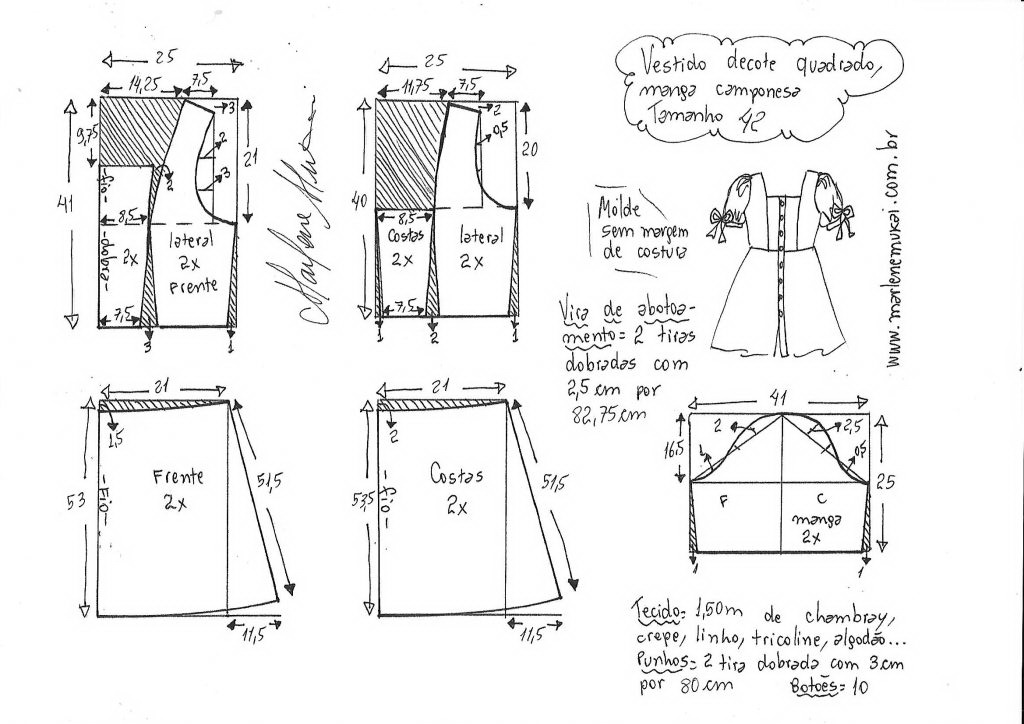 Vestido decote quadrado,
manga camponesa
Tamanho 42
25
14,25 7,5
3
9,75
2
3
2
21
41
-fio-
8,5
-dobra-
2x
lateral
2x
Frente
7,5
3
1
25
11,75 7,5
2
0,5
20
40
8,5
Costas
2x
lateral
2x
7,5
1
2
1
Molde
sem margem
de costura
www.marlenemukai.com.br
Vira de abotoa-
mento= 2 tiras
dobradas com
2,5 cm por
82,75cm
21
1,5
53
-Fio-
Frente
2x
51,5
11,5
21
2
53,5
-fio-
Costas
2x
51,5
11,5
41
2
2,5
16,5
1
0,5
25
F
C
manga
2x
1
1
Tecido= 1,50m de chambray,
crepe, linho, tricoline, algodão...
Punhos= 2 tira dobrada com 3cm
por 80cm Botões= 10